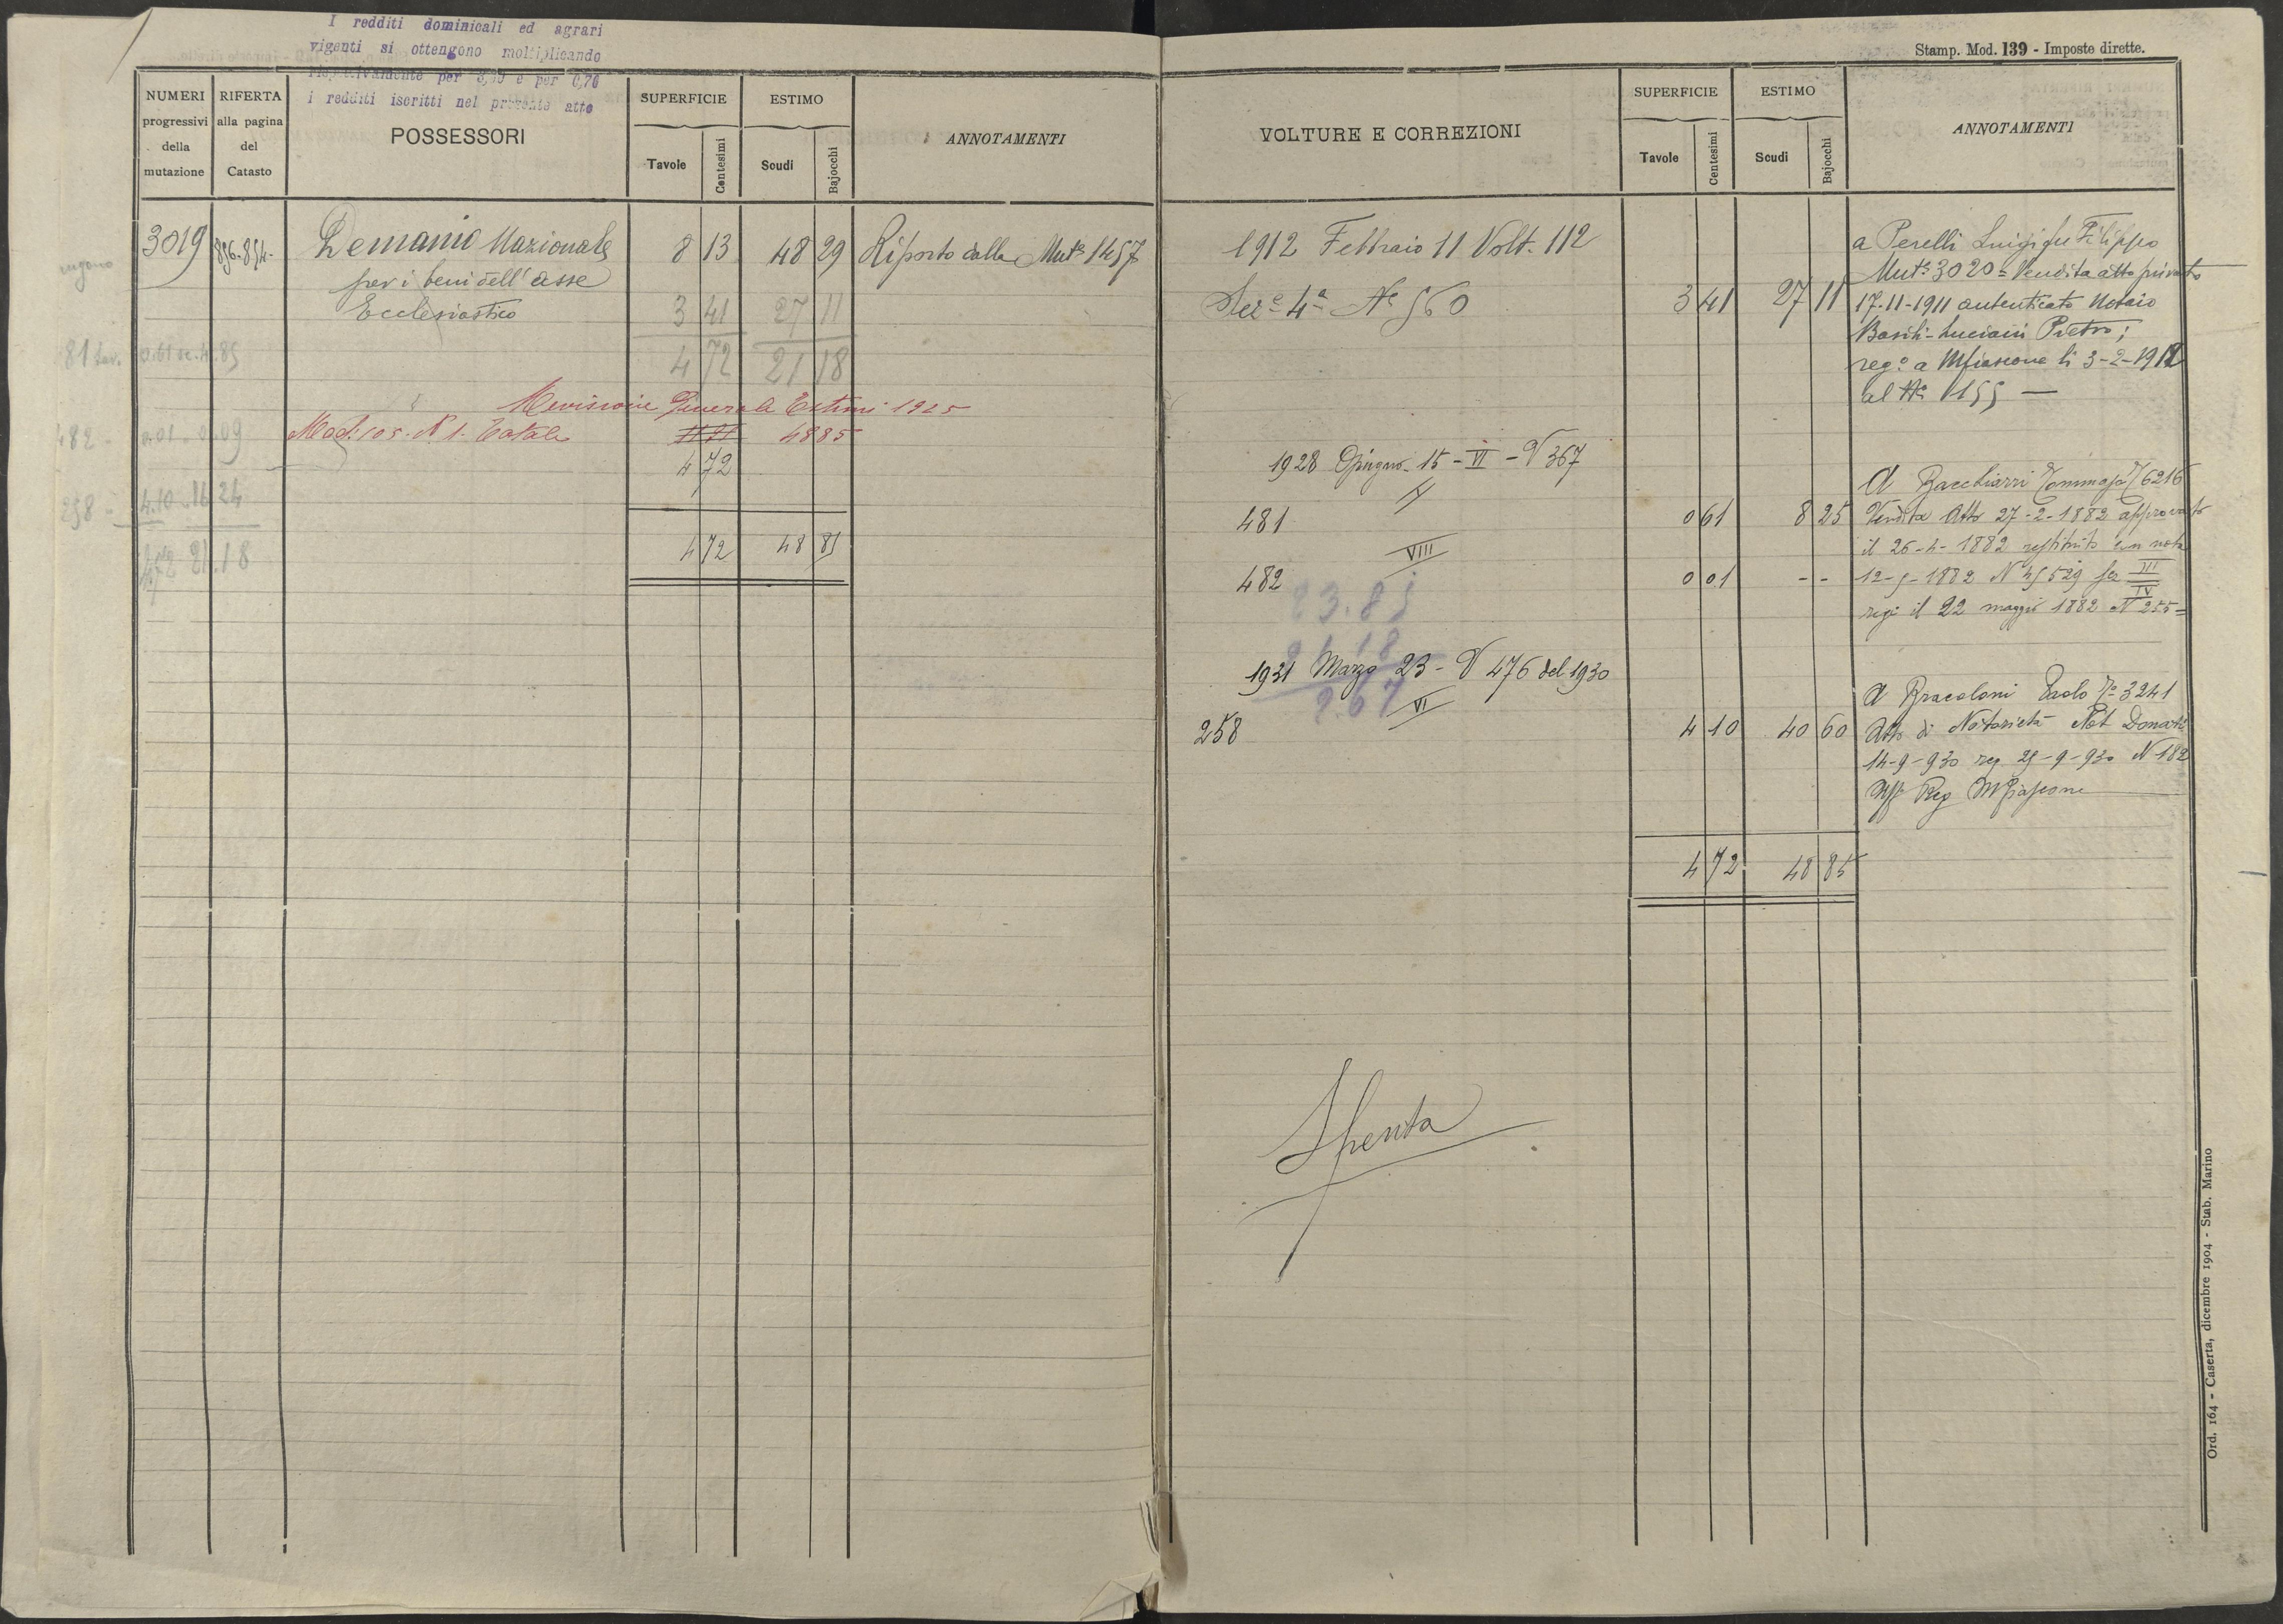 I redditi dominicali ed agrari
vigenti si ottengono moltiplicando
rispettivamente per e per 0,70
i redditi iscritti nel presente atto
NUMERI progressivi della mutazione
RIFERTA alla pagina del Catasto
POSSESSORI
SUPERFICIE
Tavole Centesimi
ESTIMO
Scudi Bajocchi
ANNOTAMENTI
3019 856-854- Demanio Nazionale 8 13 48 29 Riporto dalla Mutª 1457
per i beni dell'asse
Ecclesiastico 3 41 27 11
4 72 21 18
Revisione Generale Estimi 1925
Mod. 105. N. 1. Totale 48 85
4 72
482 0.01 0.09
258 4.10 16 24
4 72 48 85
4.72 21.18
Stamp. Mod. 139 - Imposte dirette.
VOLTURE E CORREZIONI
SUPERFICIE
Tavole Centesimi
ESTIMO
Scudi Bajocchi
ANNOTAMENTI
1912 Febbraio 11 Volt. 112
Sezᵉ 4ª Nº 560 3 41 27 11
a Perelli Luigi fu Filippo
Mutª 3020 = Vendita atto privato
17-11-1911 autenticato Notaio
Luciani Pietro;
regº a Mfiascone li 3-2-1912
al Nº 1155 —
1928 Giugno - 15 - VI - V 367
V
481 0 61 8 25
VIII
482 0 01 - -
A Bacchiarri Tommaso 6216
Vendita Atto 27-2-1882 approvato
il 26-4-1882 restituito con nota
12-5-1882 N 45529 sez III
IV
regº il 22 maggio 1882 N 255=
23.85
21.18
2.67
1931 Marzo 23 - V 476 del 1930
VI
258 4 10 40 60
A Bracoloni Paolo 3241
Atto di Notorietà Not Donati
14-9-930 reg. 25-9-930 N 182
Uff Reg Mfiascone
4 72 48 85
Spenta
Ord. 164 - Caserta, dicembre 1904 - Stab. Marino